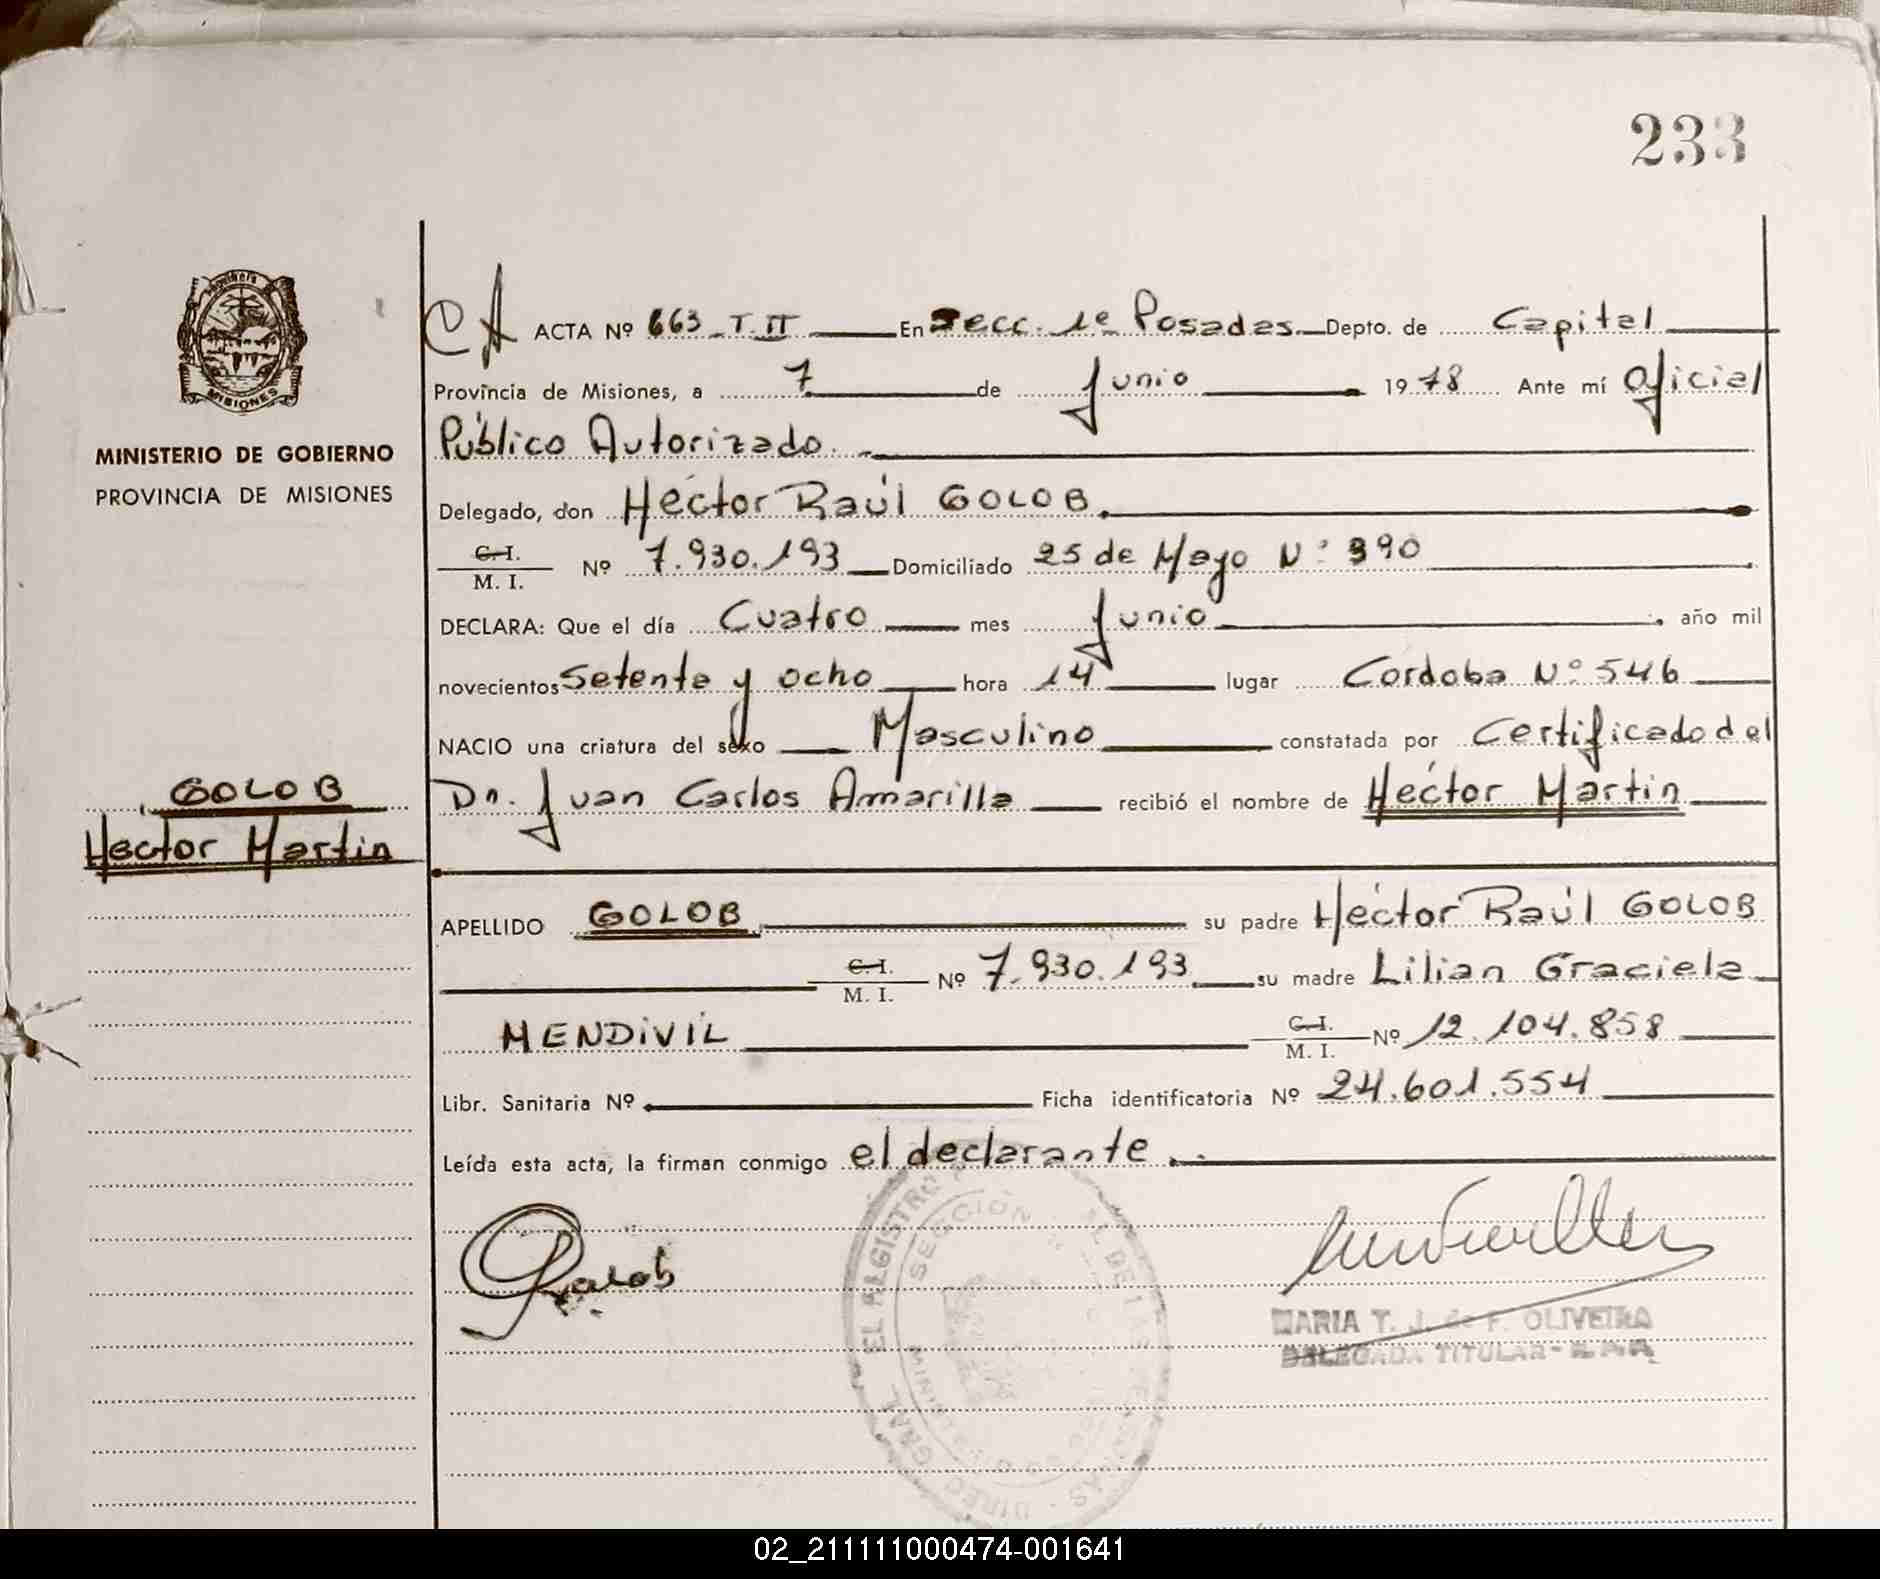 233
MISIONES
MINISTERIO DE GOBIERNO
PROVINCIA DE MISIONES
GOLOB
Hector Martin
ACTA Nº 663 - T. II En Secc. 1ª Posadas Depto. de Capital
Provincia de Misiones, a 7 de Junio 1978 Ante mí Oficial
Público Autorizado.
Delegado, don Héctor Raúl GOLOB.
C. I.
M. I. Nº 7.930.193 Domiciliado 25 de Mayo Nº 390
DECLARA: Que el día Cuatro mes Junio, año mil
novecientos Setenta y ocho hora 14 lugar Cordoba Nº 546
NACIO una criatura del sexo Masculino constatada por Certificado del
Dr. Juan Carlos Amarilla recibió el nombre de Héctor Martin
APELLIDO GOLOB su padre Héctor Raúl GOLOB
C. I.
M. I. Nº 7.930.193 su madre Lilian Graciela
MENDIVIL C. I.
M. I. Nº 12.104.858
Libr. Sanitaria Nº Ficha identificatoria Nº 24.601.554
Leída esta acta, la firman conmigo el declarante.
Golob
MARIA T. J. de F. OLIVEIRA
DELEGADA TITULAR - R. P. P.
SECCION
02_211111000474-001641